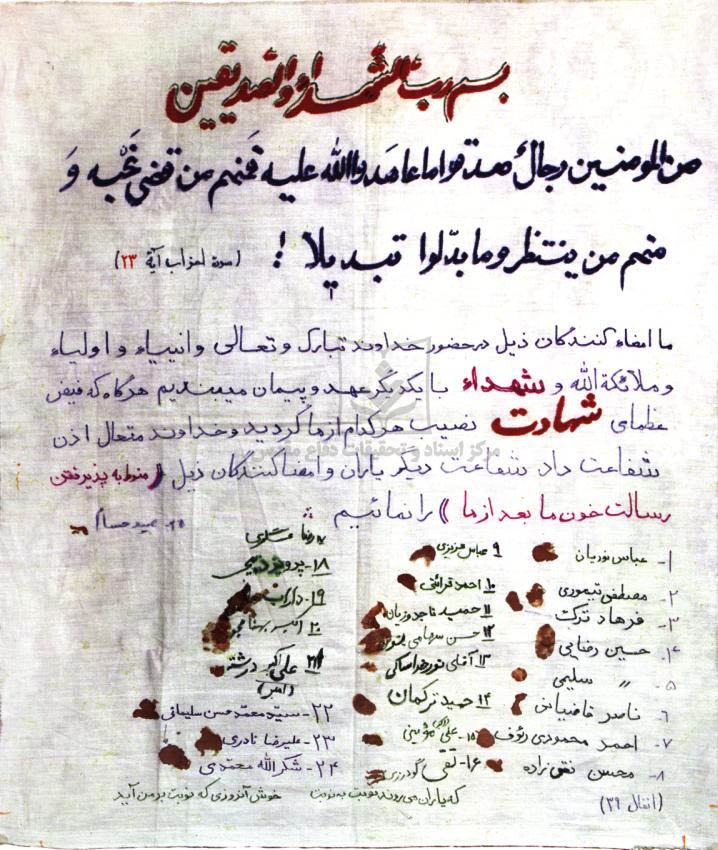 بسم رب الشهداء والصدیقین
من المومنین رجال صدقوا ما عاهدوا الله علیه فمنهم من قضی نحبه و
منهم من ینتظر و ما بدّلوا تبدیلا !
(سوره احزاب آیة ۲۳)
ما امضاء کنندگان ذیل در حضور خداوند تبارک و تعالی و انبیاء و اولیاء
و ملائکة الله و شهداء با یکدیگر عهد و پیمان میبندیم هرگاه که فیض
عظمای شهادت نصیب هر کدام از ما گردید و خداوند متعال اذن
شفاعت داد شفاعت دیگر یاران و امضا کنندگان ذیل ( منوط به پذیرفتن
رسالت خون ما بعد از ما ) را نمائیم
۱- عباس نوریان
۲- مصطفی تیموری
۳- فرهاد ترک
۴- حسین رضایی
۵- " سلیمی
۶- ناصر قاضیانی
۷- احمد محمودی رئوف
۸- محسن نقی زاده
(انفال ۳۹)
۹ عباس عزیزی
۱۰ احمد قرائتی
۱۱ حمید تاجدوزیان
۱۲ حسن سهامی
۱۳ آقای نورخراسانی
۱۴ حمید ترکمان
۱۵- علی اکبر مؤمینی
۱۶- تقی گودرزی
رضا عسگری
۱۸- پرویز
۱۹- داراب
۲۰ اکبر
۲۱ علی اکبر درشته
(امر)
۲۲- سید محمد حسن سلیمانی
۲۳- علیرضا نادری
۲۴- شکرالله معتمدی
که یاران می روند نوبت به نوبت خوش آنروزی که نوبت بر من آید
مرکز اسناد و تحقیقات دفاع مقدس